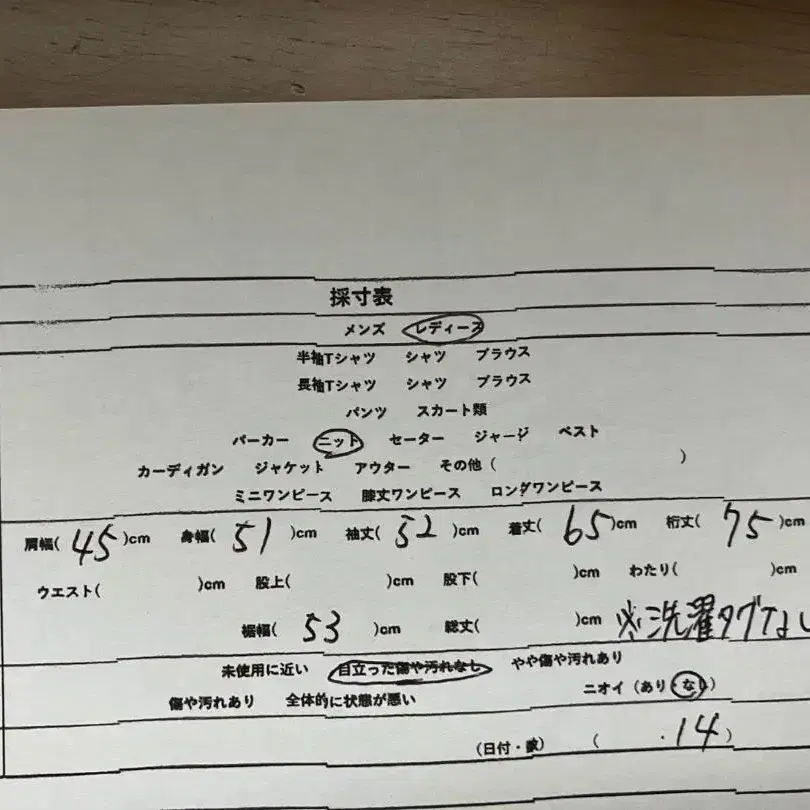 採寸表
メンズ レディース
半袖Tシャツ シャツ ブラウス
長袖Tシャツ シャツ ブラウス
パンツ スカート類
パーカー ニット セーター ジャージ ベスト
カーディガン ジャケット アウター その他( )
ミニワンピース 膝丈ワンピース ロングワンピース
肩幅( 45 )cm 身幅( 51 )cm 袖丈( 52 )cm 着丈( 65 )cm 裄丈( 75 )cm
ウエスト( )cm 股上( )cm 股下( )cm わたり( )cm
裾幅( 53 )cm 総丈( )cm ※洗濯タグなし
未使用に近い 目立った傷や汚れなし やや傷や汚れあり
傷や汚れあり 全体的に状態が悪い ニオイ(あり・なし)
(日付・數) ( .14 )